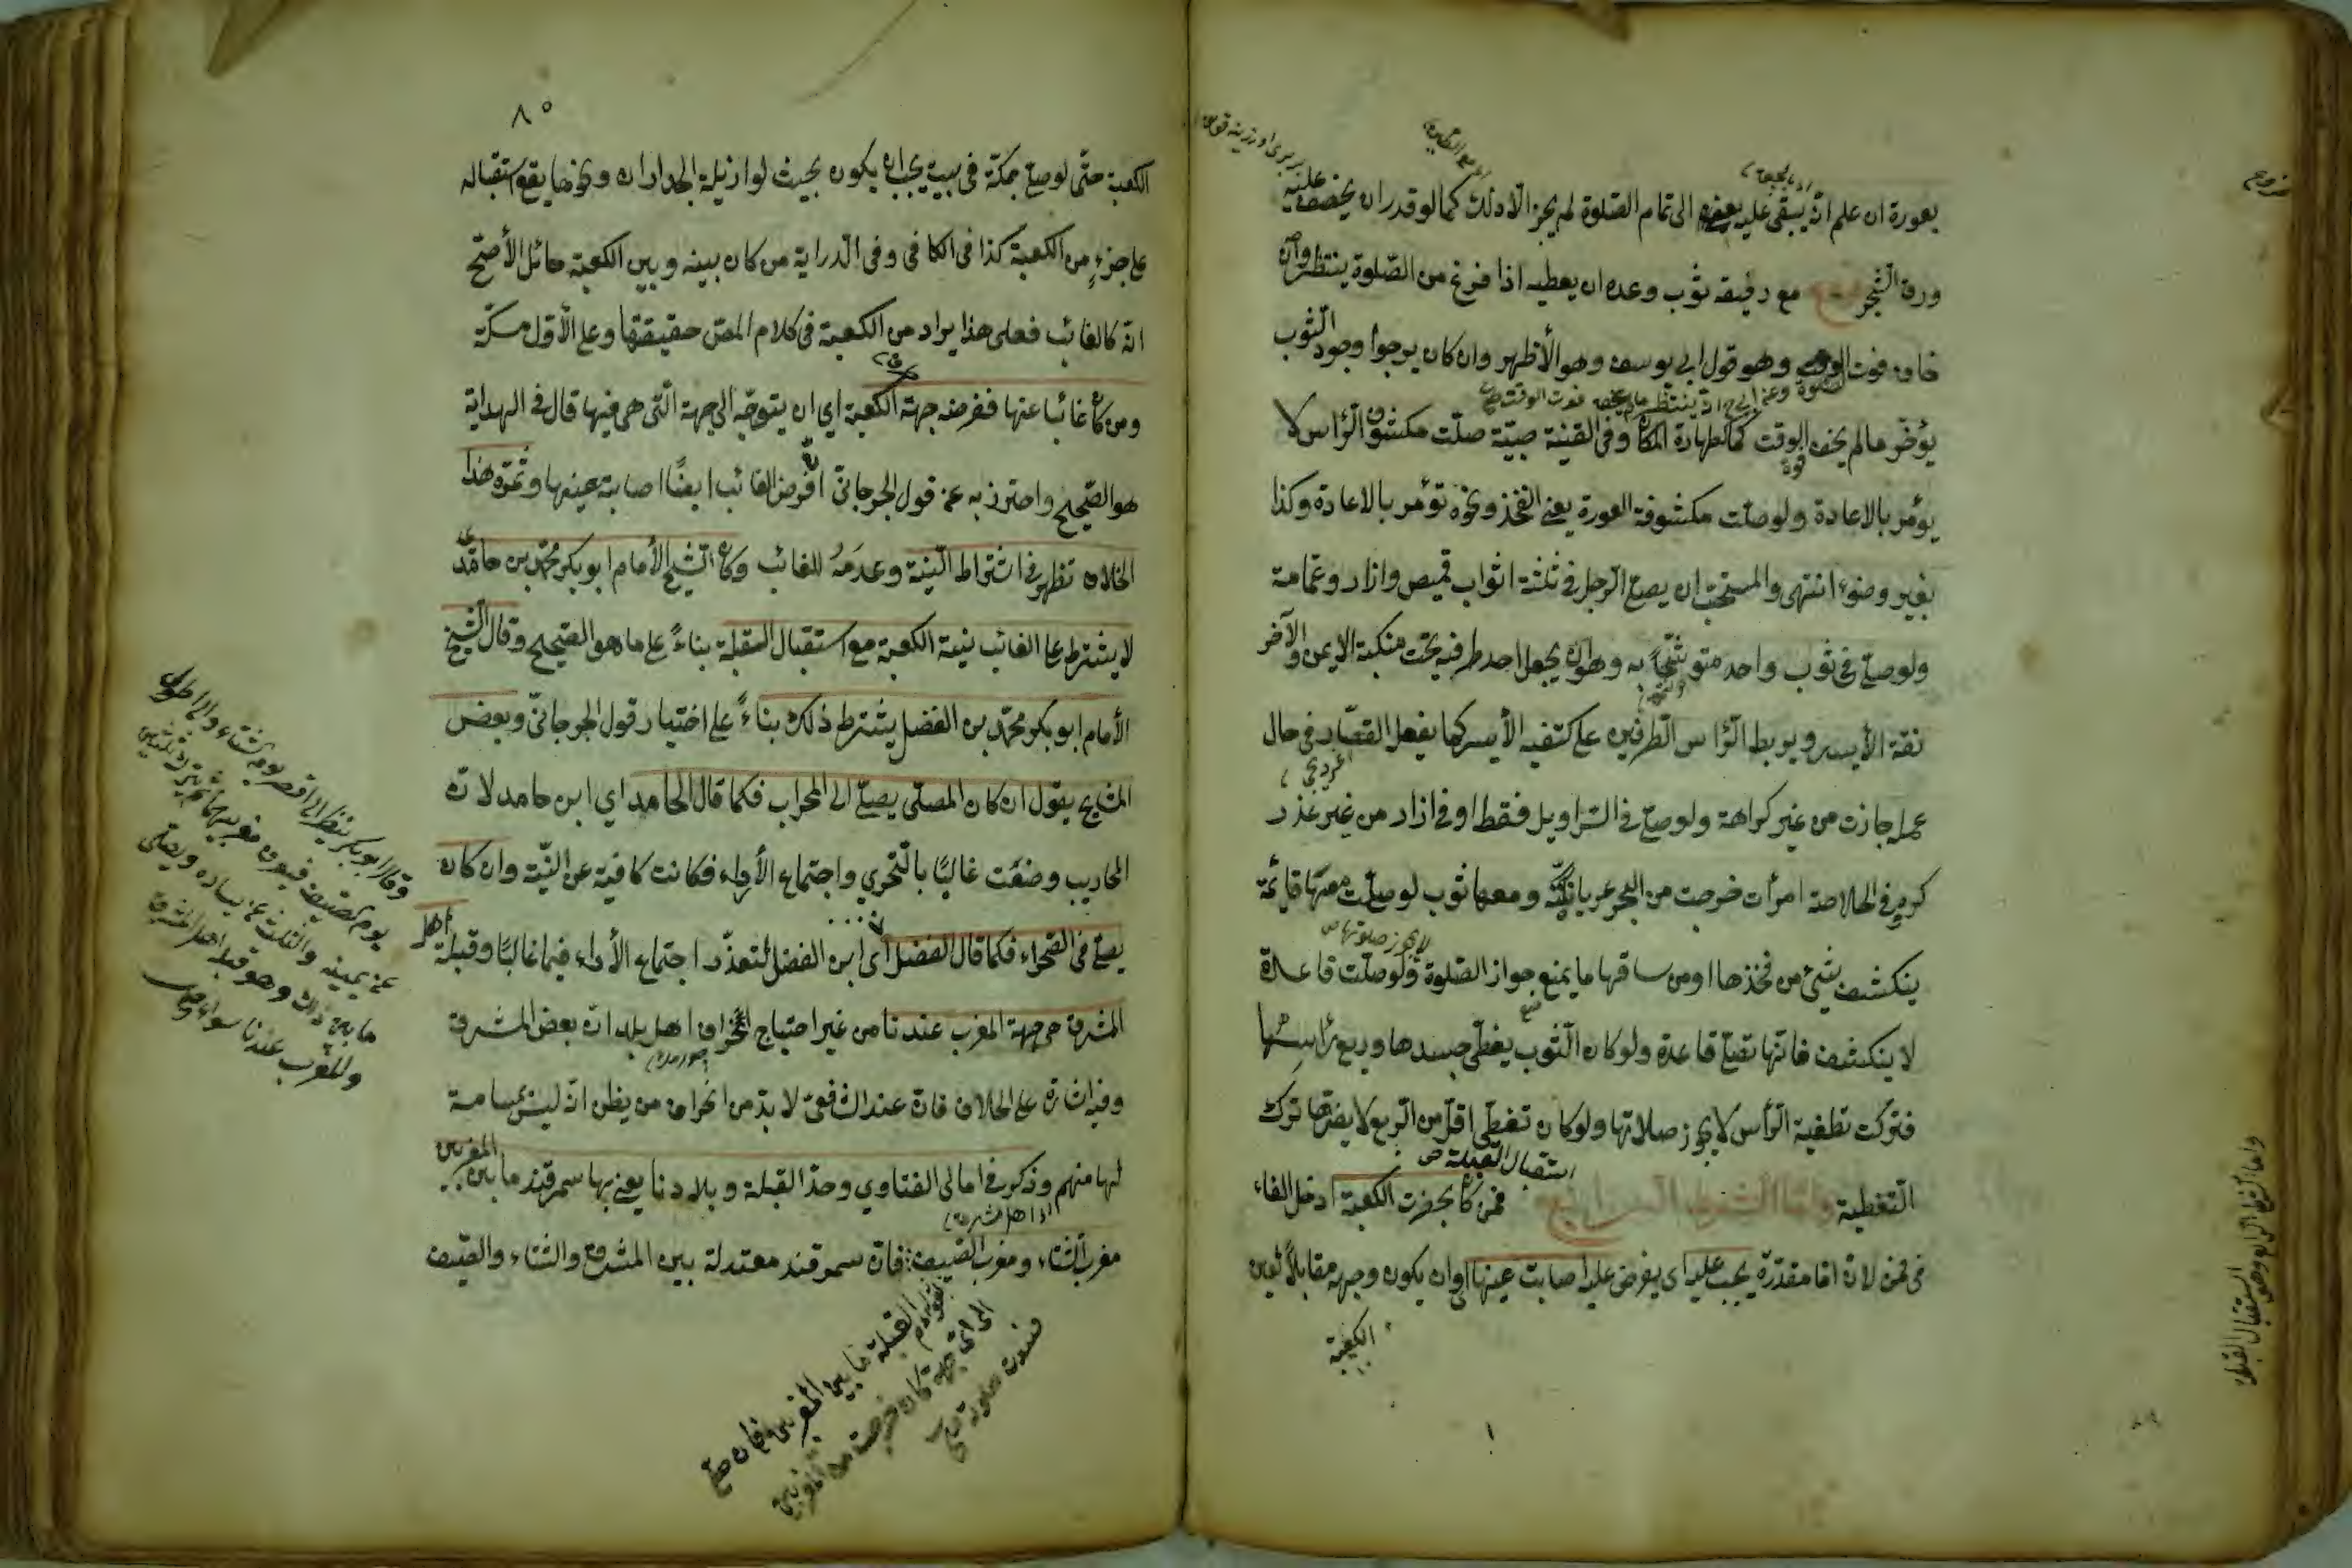 بعورة ان علم انه يبقى عليه بعضه الى تمام الصلوة لم يجز الا ذلك كما لو قدر ان يخصف عليه
ورق الشجر مع رفيقه ثوب وعده ان يعطيه اذا فرغ من الصلوة ينتظر وان
خاف فوت الوقت وهو قول ابي يوسف وهو الأظهر وان كان يرجوا وجود الثوب
يؤخر ما لم يخف الوقت كما لطهارة المكان وفى القنية صبيّة صلّت مكشوفة الرأس لا
يؤمر بالاعادة ولو صلت مكشوفة العورة يعنى الفخذ ونحوه تؤمر بالاعادة وكذا
بغير وضوء انتهى والمستحب ان يصلى الرجل فى ثلثة اثواب قميص وازار وعمامة
ولو صلى فى ثوب واحد متوشحاً به وهو ان يجعل احد طرفيه تحت منكبه الايمن والآخر
الأيسر ويربط الرأس الطرفين على كتفيه الأيسر كما يفعل القصّار فى حال
عمله جازت من غير كراهة ولو صلى فى السراويل فقط او فى ازار من غير عذر
كره وفى الخلاصة امرأت خرجت من البحر عريانة ومعها ثوب لو صلت معها قائمة
ينكشف شئ من فخذها او من ساقها ما يمنع جواز الصلوة ولو صلت قاعدة
لا ينكشف فانها تصلى قاعدة ولو كان الثوب يغطّى جسدها وربع رأسها
فتركت تغطية الرأس لا يجوز صلاتها ولو كان تغطّى اقل من الربع لا يضرها ترك
التغطية وامّا الشرط الرابع استقبال القبلة فمن كان بحضرت الكعبة ادخل الفاء
فى فمن لان اما مقدرة يجب عليه اى يفرض عليه اصابت عينها اى ان يكون وجهه مقابلاً لعين
الكعبة
واما الشرط الرابع وهو استقبال القبلة
٨٥
الكعبة حتّى لو صلى بمكة فى بيت يجب ان يكون بحيث لو ازيلت الجدران ونحوها يقع استقباله
على جزءٍ من الكعبة كذا فى الكافى وفى الدراية من كان بينه وبين الكعبة حائل الأصح
انه كالغائب فعلى هذا يراد من الكعبة فى كلام المص حقيقتها وعلى الأول مكة
ومن كان غائبا عنها ففرضه جهة الكعبة اى ان يتوجّه الى جهة الّتى هى فيها قال فى الهداية
هو الصّحيح واحترز به عن قول الجرجانىّ ان فرض الغائب ايضًا اصابة عينها وثمرة هذا
الخلاف تظهر فى اشتراط النية وعدمه للغائب وكان الشيخ الأمام ابو بكر محمّد بن حامد
لا يشترط على الغائب نية الكعبة مع استقبال القبلة بناءً على ما هو الصحيح وقال الشيخ
الأمام ابو بكر محمّد بن الفضل يشترط ذلك بناءً على اختيار قول الجرجانىّ وبعض
المشايخ يقول ان كان المصلّى يصلّى الى المحراب فكما قال الحامد اى ابن حامد لانّه
المحاريب وضعت غالبًا بالتحري واجتماع الأراء فكانت كافية عن النيّة وان كان
يصلى فى الصحراء فكما قال الفضل اى ابن الفضل لتعذّر اجتماع الأراء فيها غالبًا وقبلة اهل
المشرق هى جهة المغرب عندنا من غير احتياج انحراف اهل بلدان بعض المشرق
وفيه اشارة على الخلاف فان عند الشافعىّ لا بدّ من انحراف من يظن انه ليس بمسامت
لها منهم وذكر فى امالى الفتاوي وحدّ القبلة وبلادنا يعنى بها سمرقند ما بين المغربين
مغرب الشتاء ومغرب الصّيف فان سمرقند معتدلة بين المشرق والشتاء والصّيف
القبلة ما بين المغربين فان صلّى
الى اى جهة كان خرجت من المغربين
فسدت صلوته
وقال ابو بكر ينظر الى اقصر يوم الشتاء والى اطول
يوم الصيف فيعرف مغربيهما ثم يترك الثلثين
عن يمينه والثلث عن يساره ويصلى
ما بين ذلك وهو قبلة اهل المشرق
وللمغرب عندنا سواء